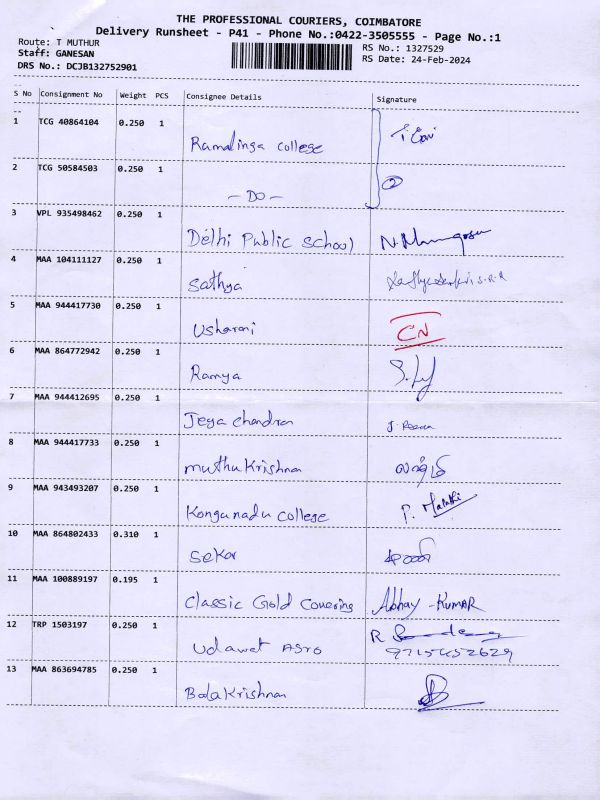 THE PROFESSIONAL COURIERS, COIMBATORE
Delivery Runsheet - P41 - Phone No.:0422-3505555 - Page No.:1
Route: T MUTHUR
RS No.: 1327529
Staff: GANESAN
RS Date: 24-Feb-2024
DRS No.: DCJB132752901
S No Consignment No Weight PCS Consignee Details Signature
1 TCG 40864104 0.250 1
Ramalinga college
2 TCG 50584503 0.250 1 2
- DO -
3 VPL 935498462 0.250 1
Delhi Public School
4 MAA 104111127 0.250 1
Sathya
5 MAA 944417730 0.250 1
Usharani CN
6 MAA 864772942 0.250 1
Ramya
7 MAA 944412695 0.250 1
Jeya chandran
8 MAA 944417733 0.250 1
muthu Krishnan
9 MAA 943493207 0.250 1
Kongunadu college P. Malathi
10 MAA 864802433 0.310 1
Sekar
11 MAA 100889197 0.195 1
Classic Gold Covering Abhay - KUMAR
12 TRP 1503197 0.250 1
Udawet Asro
13 MAA 863694785 0.250 1
Bala Krishnan